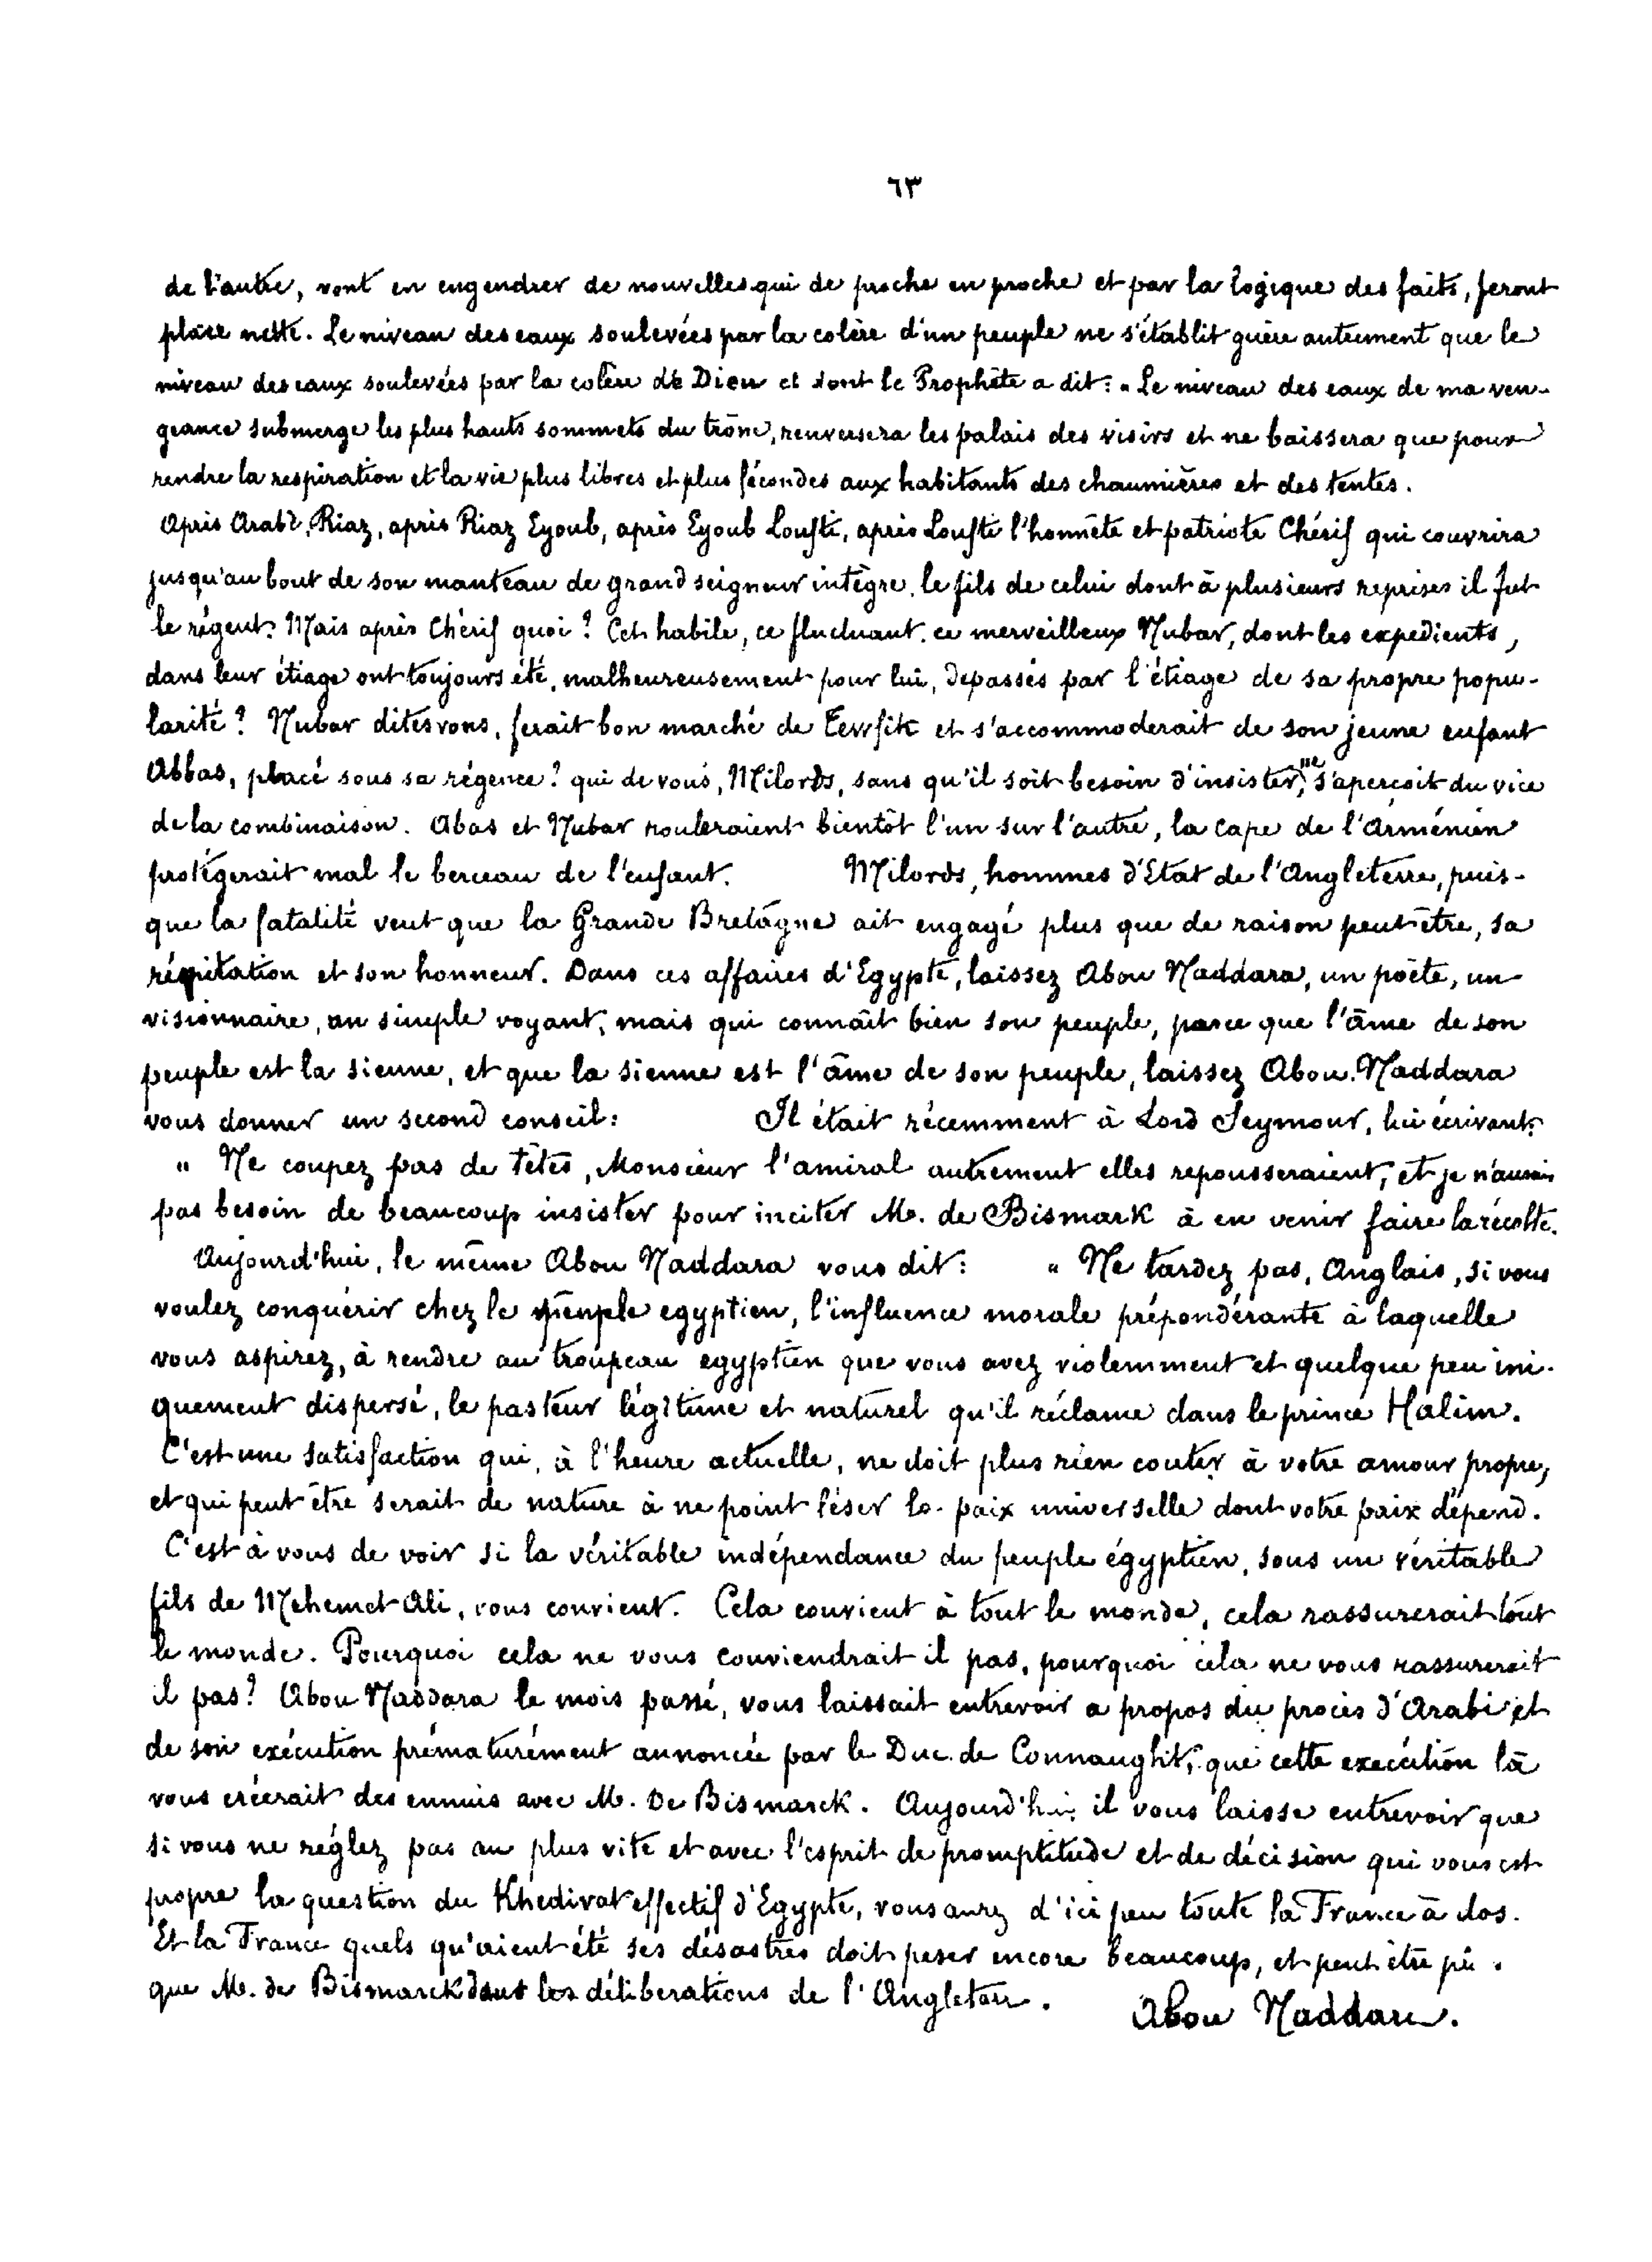 ٦٣
de l'autre, vont en engendrer de nouvelles qui de proche en proche et par la logique des faits, feront
place nette. Le niveau des eaux soulevées par la colère d'un peuple ne s'établit guère autrement que le
niveau des eaux soulevées par la colère de Dieu et dont le Prophète a dit: " Le niveau des eaux de ma ven-
geance submerge les plus hauts sommets du trône, renversera les palais des visirs et ne baissera que pour
rendre la respiration et la vie plus libres et plus fécondes aux habitants des chaumières et des tentes.
Après Arabi, Riaz, après Riaz Eyoub, après Eyoub Loufti, après Loufti l'honnête et patriote Chérif qui couvrira
jusqu'au bout de son manteau de grand seigneur intègre, le fils de celui dont à plusieurs reprises il fut
le régent. Mais après Chérif quoi? Cet habile, ce fluctuant, ce merveilleux Nubar, dont les expedients,
dans leur étiage ont toujours été, malheureusement pour lui, depassés par l'étiage de sa propre popu-
larité? Nubar dites vous, ferait bon marché de Tewfik et s'accommoderait de son jeune enfant
Abbas, placé sous sa régence? qui de vous, Milords, sans qu'il soit besoin d'insister, ne s'aperçoit du vice
de la combinaison. Abas et Nubar rouleraient bientôt l'un sur l'autre, la cape de l'Arménien
protégerait mal le berceau de l'enfant. Milords, hommes d'Etat de l'Angleterre, puis-
que la fatalité veut que la Grande Bretagne ait engagé plus que de raison peut être, sa
réputation et son honneur. Dans ces affaires d'Egypte, laissez Abou Naddara, un poète, un
visionnaire, un simple voyant, mais qui connaît bien son peuple, parce que l'âme de son
peuple est la sienne, et que la sienne est l'âme de son peuple, laissez Abou Naddara
vous donner un second conseil: Il était récemment à Lord Seymour, lui écrivant:
" Ne coupez pas de têtes, Monsieur l'amiral autrement elles repousseraient, et je n'aurais
pas besoin de beaucoup insister pour inciter M. de Bismark à en venir faire la récolte.
Aujourd'hui, le même Abou Naddara vous dit: " Ne tardez pas, Anglais, si vous
voulez conquérir chez le peuple egyptien, l'influence morale prépondérante à laquelle
vous aspirez, à rendre au troupeau egyptien que vous avez violemment et quelque peu ini-
quement dispersé, le pasteur légitime et naturel qu'il réclame dans le prince Halim.
C'est une satisfaction qui, à l'heure actuelle, ne doit plus rien couter à votre amour propre,
et qui peut être serait de nature à ne point léser la paix universelle dont votre paix dépend.
C'est à vous de voir si la véritable indépendance du peuple égyptien, sous un véritable
fils de Mehemet Ali, vous convient. Cela convient à tout le monde, cela rassurerait tout
le monde. Pourquoi cela ne vous conviendrait il pas, pourquoi cela ne vous rassurerait
il pas? Abou Naddara le mois passé, vous laissait entrevoir a propos du procès d'Arabi et
de son exécution prématurément annoncée par le Duc de Connaught, que cette execution là
vous créerait des ennuis avec M. De Bismarck. Aujourd'hui il vous laisse entrevoir que
si vous ne réglez pas au plus vite et avec l'esprit de promptitude et de décision qui vous est
propre la question du Khedivat effectif d'Egypte, vous aurez d'ici peu toute la France à dos.
Et la France quels qu'aient été ses désastres doit peser encore beaucoup, et peut être plu
que M. de Bismarck dans les déliberations de l'Angleterre.
Abou Naddara.